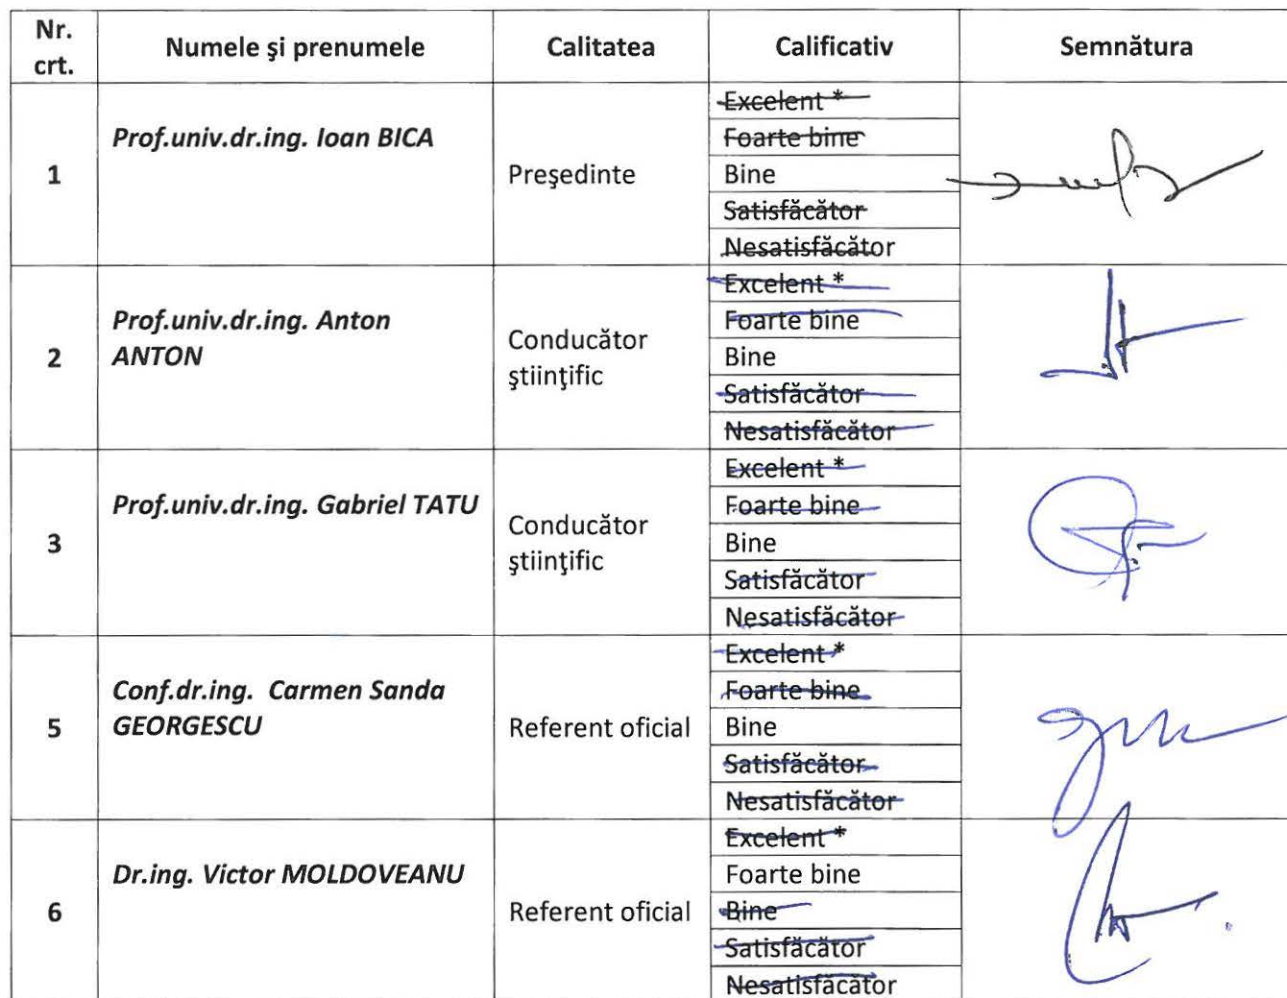 Nr.
crt.
Numele şi prenumele
Calitatea
Calificativ
Semnătura
1
Prof.univ.dr.ing. Ioan BICA
Preşedinte
Excelent *
Foarte bine
Bine
Satisfăcător
Nesatisfăcător
2
Prof.univ.dr.ing. Anton
ANTON
Conducător
ştiinţific
Excelent *
Foarte bine
Bine
Satisfăcător
Nesatisfăcător
3
Prof.univ.dr.ing. Gabriel TATU
Conducător
ştiinţific
Excelent *
Foarte bine
Bine
Satisfăcător
Nesatisfăcător
5
Conf.dr.ing. Carmen Sanda
GEORGESCU
Referent oficial
Excelent *
Foarte bine
Bine
Satisfăcător
Nesatisfăcător
6
Dr.ing. Victor MOLDOVEANU
Referent oficial
Excelent *
Foarte bine
Bine
Satisfăcător
Nesatisfăcător